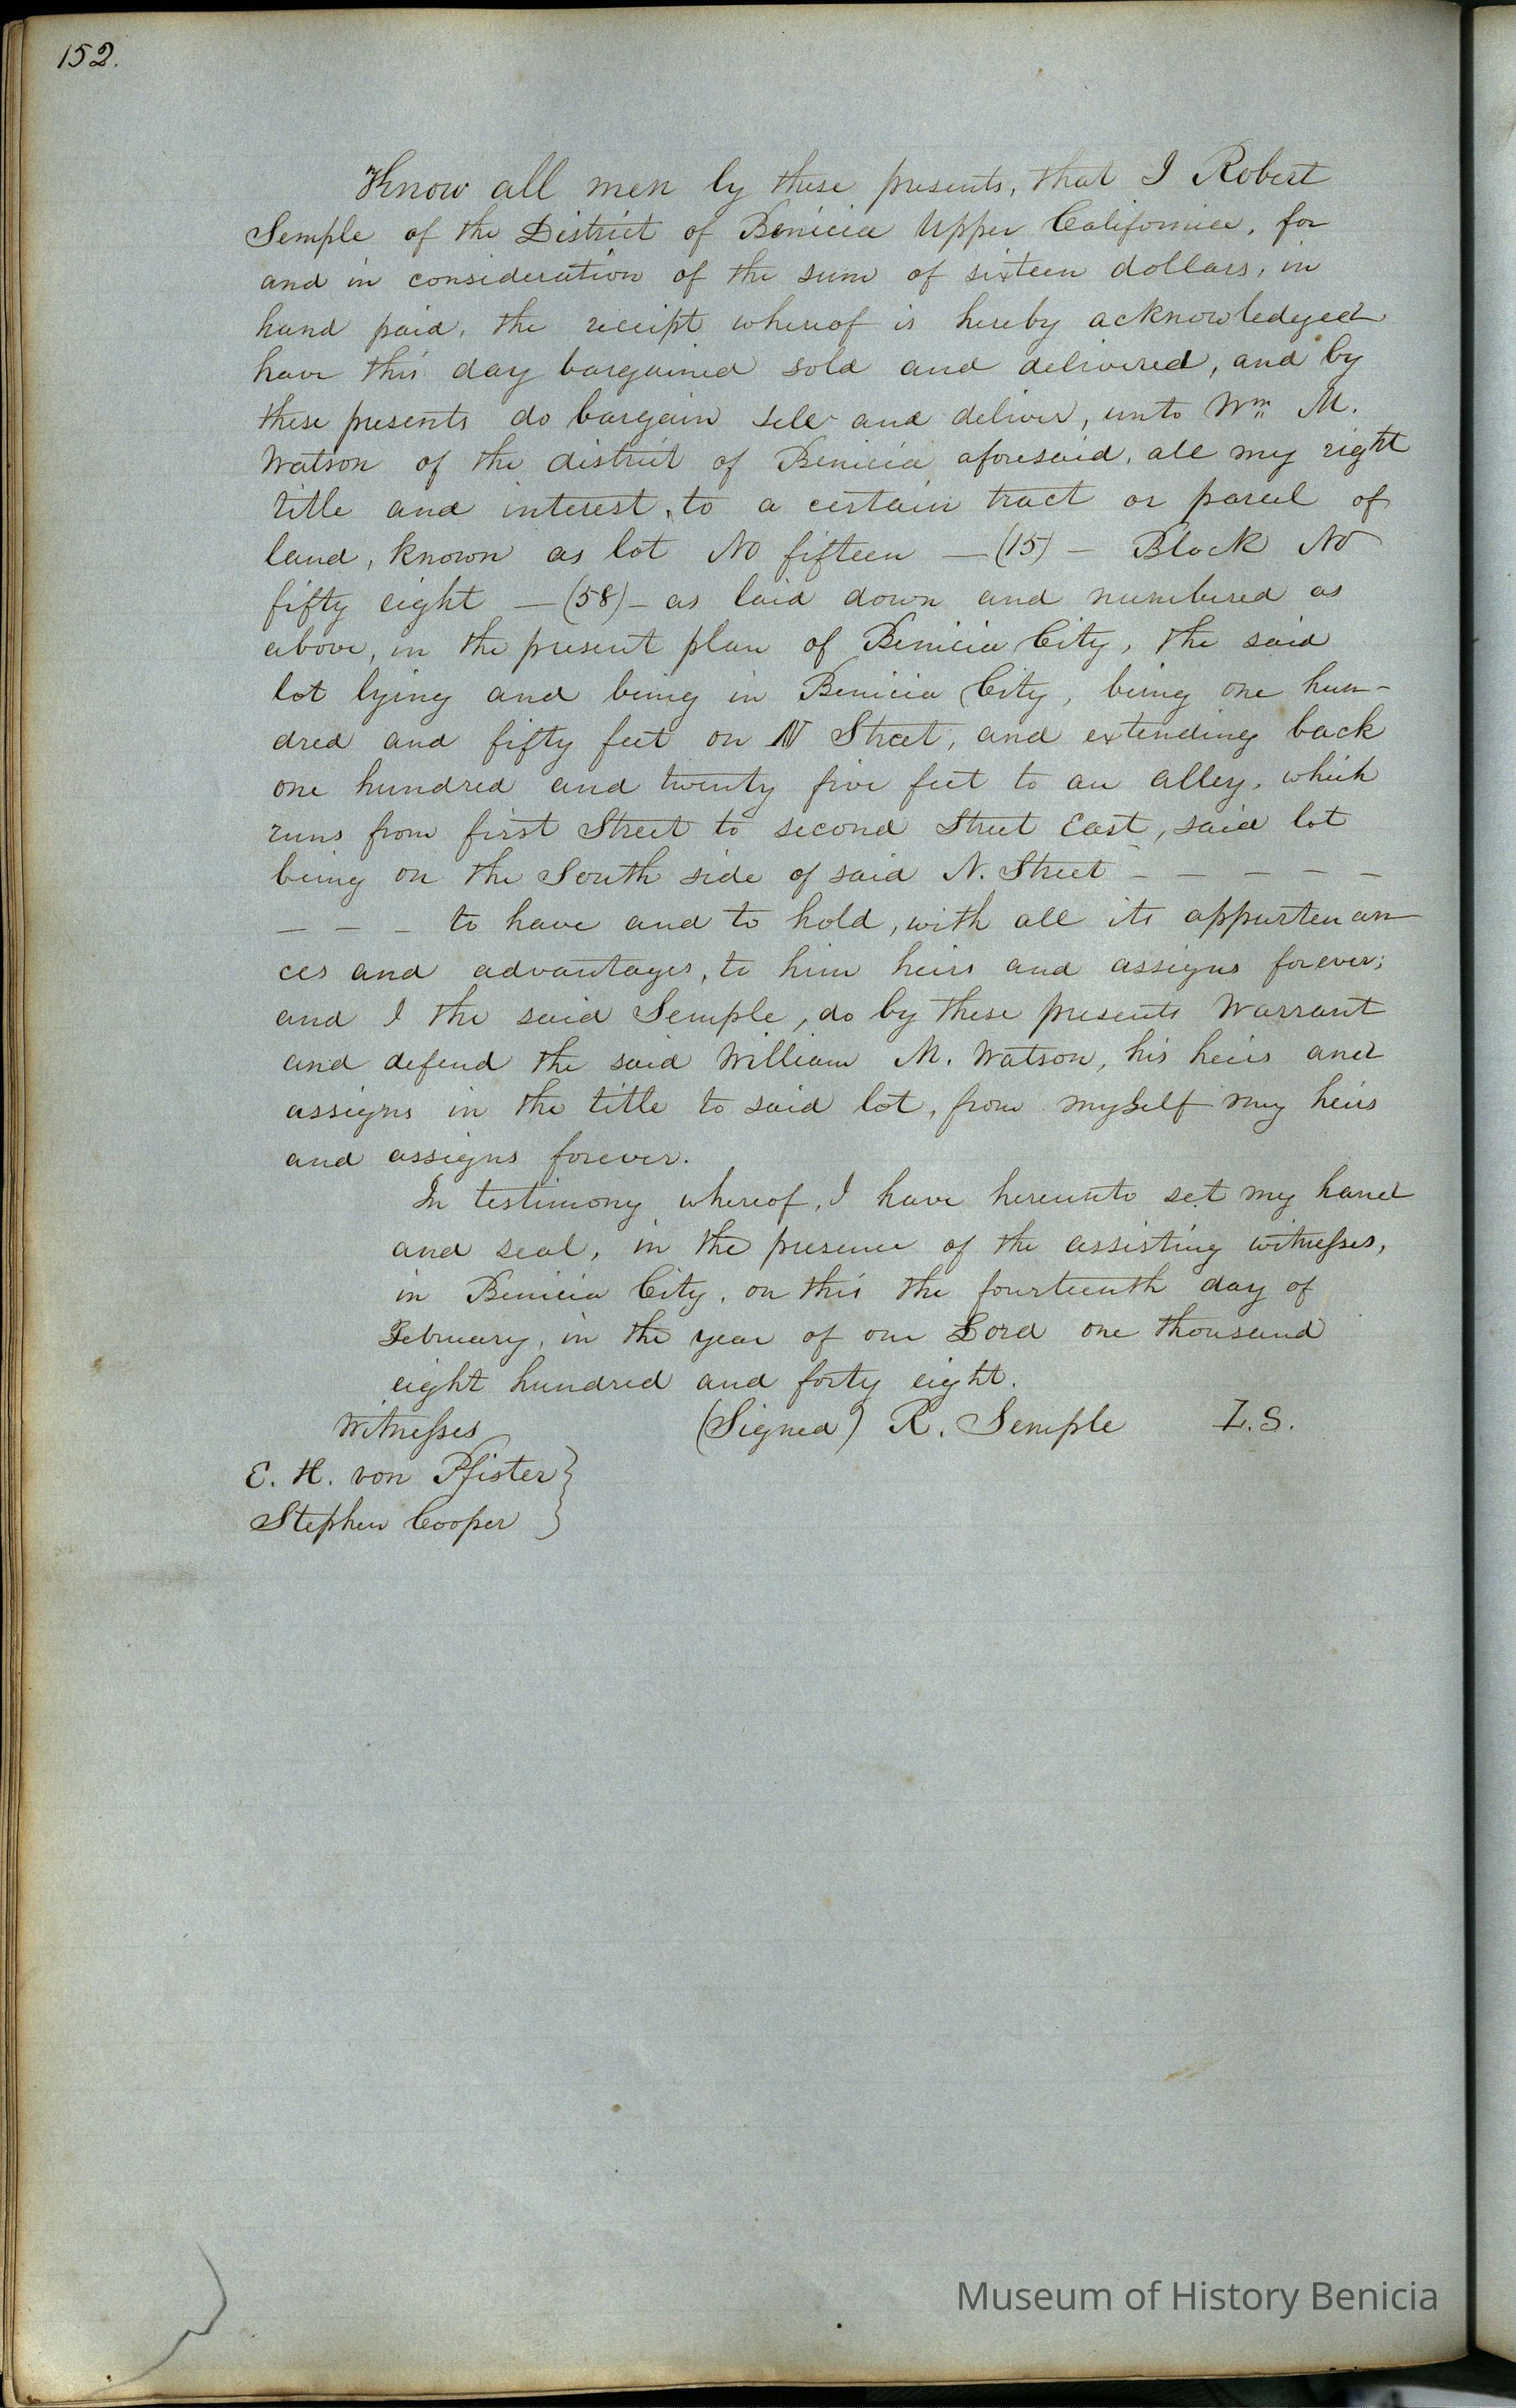 152.
Know all men by these presents, that I Robert
Semple of the District of Benicia Upper California, for
and in consideration of the sum of sixteen dollars, in
hand paid, the receipt whereof is hereby acknowledged
have this day bargained sold and delivered, and by
these presents do bargain sell and deliver, unto Wm M.
Watson of the district of Benicia aforesaid, all my right
title and interest, to a certain tract or parcel of
land, known as lot No fifteen — (15) — Block No
fifty eight — (58) — as laid down and numbered as
above, in the present plan of Benicia City, the said
lot lying and being in Benicia City, being one hun-
dred and fifty feet on N Street, and extending back
one hundred and twenty five feet to an alley, which
runs from first Street to second Street East, said lot
being on the South side of said N. Street – – – – –
– – – to have and to hold, with all its appurtenan
ces and advantages, to him heirs and assigns forever;
and I the said Semple, do by these presents Warrant
and defend the said William M. Watson, his heirs and
assigns in the title to said lot, from myself my heirs
and assigns forever.
In testimony whereof, I have hereunto set my hand
and seal, in the presence of the assisting witnesses,
in Benicia City, on this the fourteenth day of
February, in the year of our Lord one thousand
eight hundred and forty eight.
Witnesses (Signed) R. Semple L.S.
E. H. von Pfister }
Stephen Cooper }
Museum of History Benicia